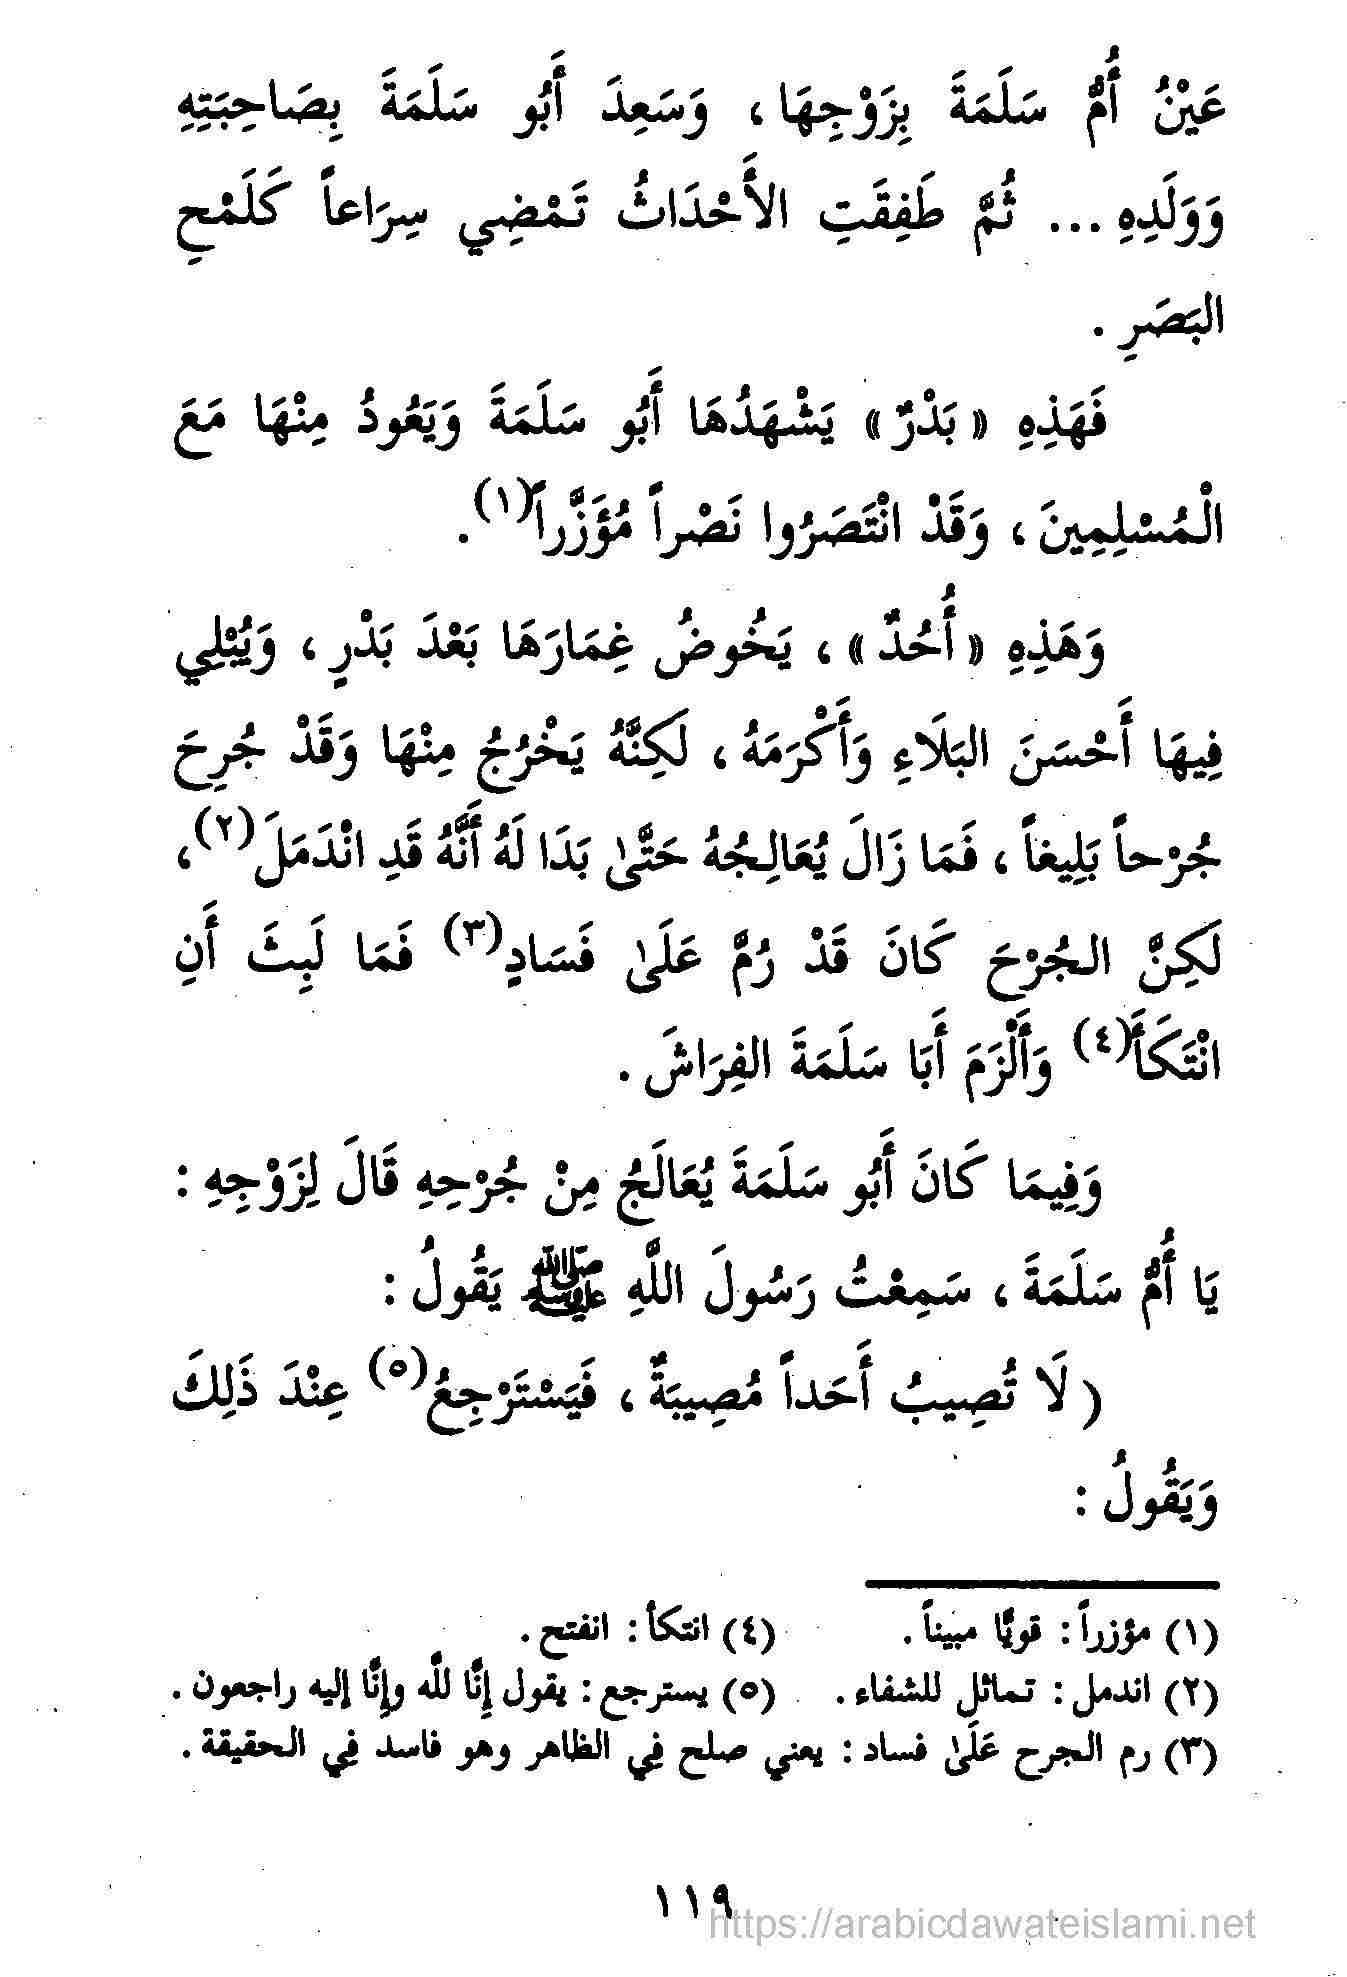 عَيْنُ أُمُّ سَلَمَةَ بِزَوْجِهَا ، وَسَعِدَ أَبُو سَلَمَةَ بِصَاحِبَتِهِ
وَوَلَدِهِ ... ثُمَّ طَفِقَتِ الأَحْدَاثُ تَمْضِي سِرَاعاً كَلَمْحِ
البَصَرِ .
فَهَذِهِ « بَدْرٌ » يَشْهَدُهَا أَبُو سَلَمَةَ وَيَعُودُ مِنْهَا مَعَ
الْمُسْلِمِينَ ، وَقَدْ انْتَصَرُوا نَصْراً مُؤَزَّراً(١) .
وَهَذِهِ « أُحُدٌ » ، يَخُوضُ غِمَارَهَا بَعْدَ بَدْرٍ ، وَيُبْلِي
فِيهَا أَحْسَنَ البَلَاءِ وَأَكْرَمَهُ ، لَكِنَّهُ يَخْرُجُ مِنْهَا وَقَدْ جُرِحَ
جُرْحاً بَلِيغاً ، فَمَا زَالَ يُعَالِجُهُ حَتَّىٰ بَدَا لَهُ أَنَّهُ قَدِ انْدَمَلَ(٢) ،
لَكِنَّ الجُرْحَ كَانَ قَدْ رُمَّ عَلَىٰ فَسَادٍ(٣) فَمَا لَبِثَ أَنِ
انْتَكَأَ(٤) وَأَلْزَمَ أَبَا سَلَمَةَ الفِرَاشَ .
وَفِيمَا كَانَ أَبُو سَلَمَةَ يُعَالَجُ مِنْ جُرْحِهِ قَالَ لِزَوْجِهِ :
يَا أُمُّ سَلَمَةَ ، سَمِعْتُ رَسُولَ اللَّهِ ﷺ يَقُولُ :
( لَا تُصِيبُ أَحَداً مُصِيبَةٌ ، فَيَسْتَرْجِعُ(٥) عِنْدَ ذَلِكَ
وَيَقُولُ :
(١) مؤزراً : قويًّا مبيناً .
(٢) اندمل : تماثل للشفاء .
(٣) رم الجرح عَلَىٰ فساد : يعني صلح فِي الظاهر وهو فاسد فِي الحقيقة .
(٤) انتكأ : انفتح .
(٥) يسترجع : يقول إِنَّا للَّه وإِنَّا إليه راجعون .
١١٩
https://arabicdawateislami.net